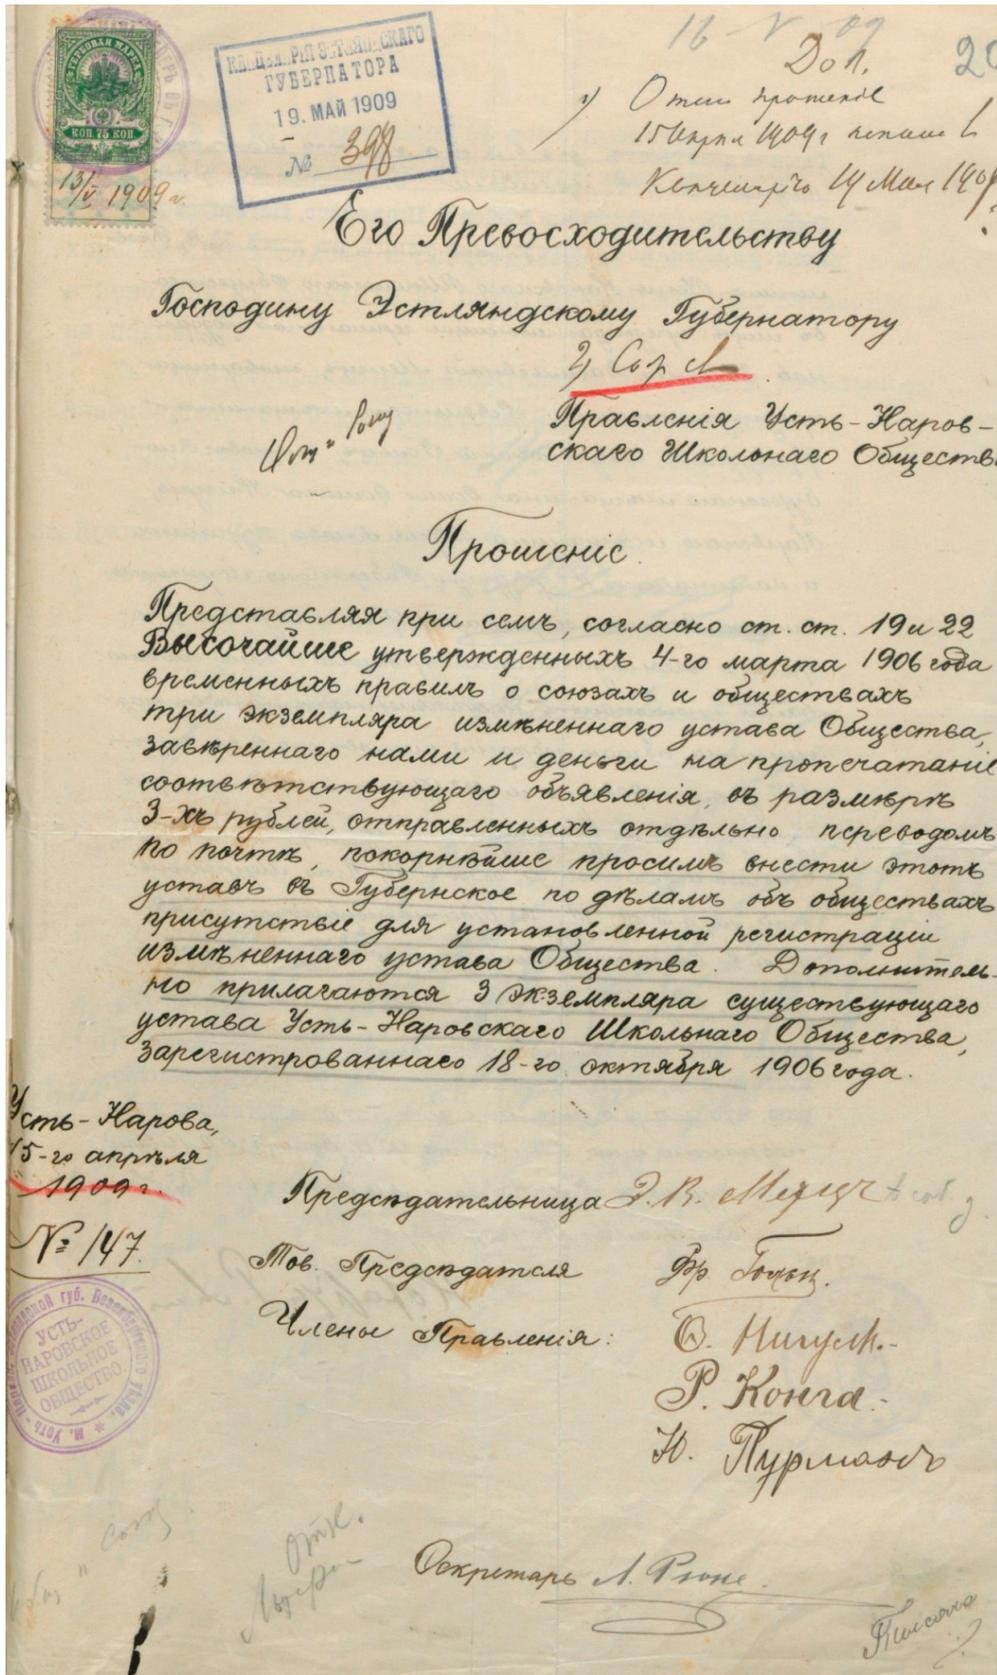 ГЕРБОВАЯ МАРКА
КОП. 75 КОП.
13/V 1909 г.
КАНЦЕЛЯРІЯ ЭСТЛЯНДСКАГО
ГУБЕРНАТОРА
19. МАЙ 1909
№ 398
16 V 09
Дол.
1)
прошеніе
15 апреля 1909 г
19 Мая 1909
Его Превосходительству
Господину Эстляндскому Губернатору
2)
Правленія Усть-Наров-
скаго Школьнаго Общества
Прошеніе.
Представляя при семъ, согласно ст. ст. 19 и 22
Высочайше утвержденныхъ 4-го марта 1906 года
временныхъ правилъ о союзахъ и обществахъ
три экземпляра измѣненнаго устава Общества,
завѣреннаго нами и деньги на пропечатаніе
соотвѣтствующаго объявленія, въ размѣрѣ
3-хъ рублей, отправленныхъ отдѣльно переводомъ
по почтѣ, покорнѣйше просимъ внести этотъ
уставъ въ Губернское по дѣламъ объ обществахъ
присутствіе для установленной регистраціи
измѣненнаго устава Общества. Дополнитель-
но прилагаются 3 экземпляра существующаго
устава Усть-Наровскаго Школьнаго Общества,
зарегистрованнаго 18-го октября 1906 года.
Усть-Нарова,
15-го апрѣля
1909 г.
№ 147.
Предсѣдательница Э. В.
Тов. Предсѣдателя Фр.
Члены Правленія: О. Нигулъ.
Р. Конга.
Ю. Пурманъ
УСТЬ-
НАРОВСКОЕ
ШКОЛЬНОЕ
ОБЩЕСТВО
Секретарь Л.